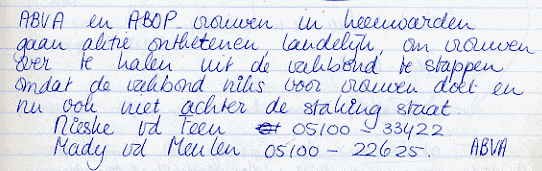 ABVA en ABOP vrouwen in Leeuwarden
gaan aktie ontketenen, landelijk, om vrouwen
over te halen uit de vakbond te stappen
omdat de vakbond niks voor vrouwen doet en
nu ook niet achter de staking staat.
Nieske vd Feen 05100 - 33422
Mady vd Meulen 05100 - 22625. ABVA